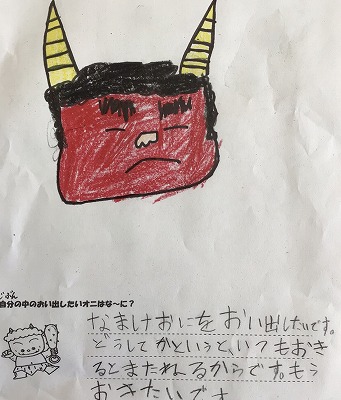 じぶん
自分の中のおい出したいオニはな～に?
なまけおにをおい出したいです。
どうしてかというと、いつもおき
るとまたねるからです。もう
おきたいです